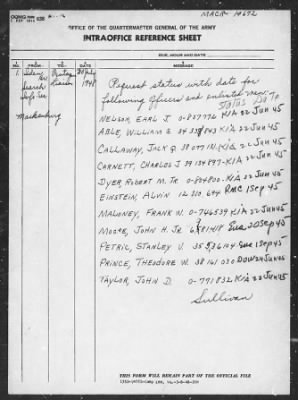 MACR- 14672
OQMG FORM
OFFICE OF THE QUARTERMASTER GENERAL OF THE ARMY
INTRAOFFICE REFERENCE SHEET
DUE, HOUR AND DATE
NO. FROM- TO- DATE MESSAGE
1 Iden Br Search Info Sec 30 July 1948 Request status with date for
Mackenburg following officers and enlisted men
Status Date
NELSON, EARL J. 0-807776 KIA 22 Jun 45
ABLE, WILLIAM G 34 338843 KIA 22 Jun 45
CALLAWAY, JACK G 38 077 181 KIA 22 Jun 45
CARNETT, CHARLES J 39 134897 KIA 22 Jun 45
DYER, ROBERT M. JR 0-804800 KIA 22 Jun 45
EINSTEIN, ALVIN 12 210 694 RMC 1 Sep 45
MALONEY, FRANK W. 0-746539 KIA 22 Jun 45
MOORE, JOHN H. JR Eva 20 Sep 45
PETRIL, STANLEY V. 35 536104 1 Sep 45
PRINCE, THEODORE W. 38 161 020 DOW 24 Jun 45
TAYLOR, JOHN D. 0-771832 KIA 22 Jun 45
Sullivan
THIS FORM WILL REMAIN PART OF THE OFFICIAL FILE